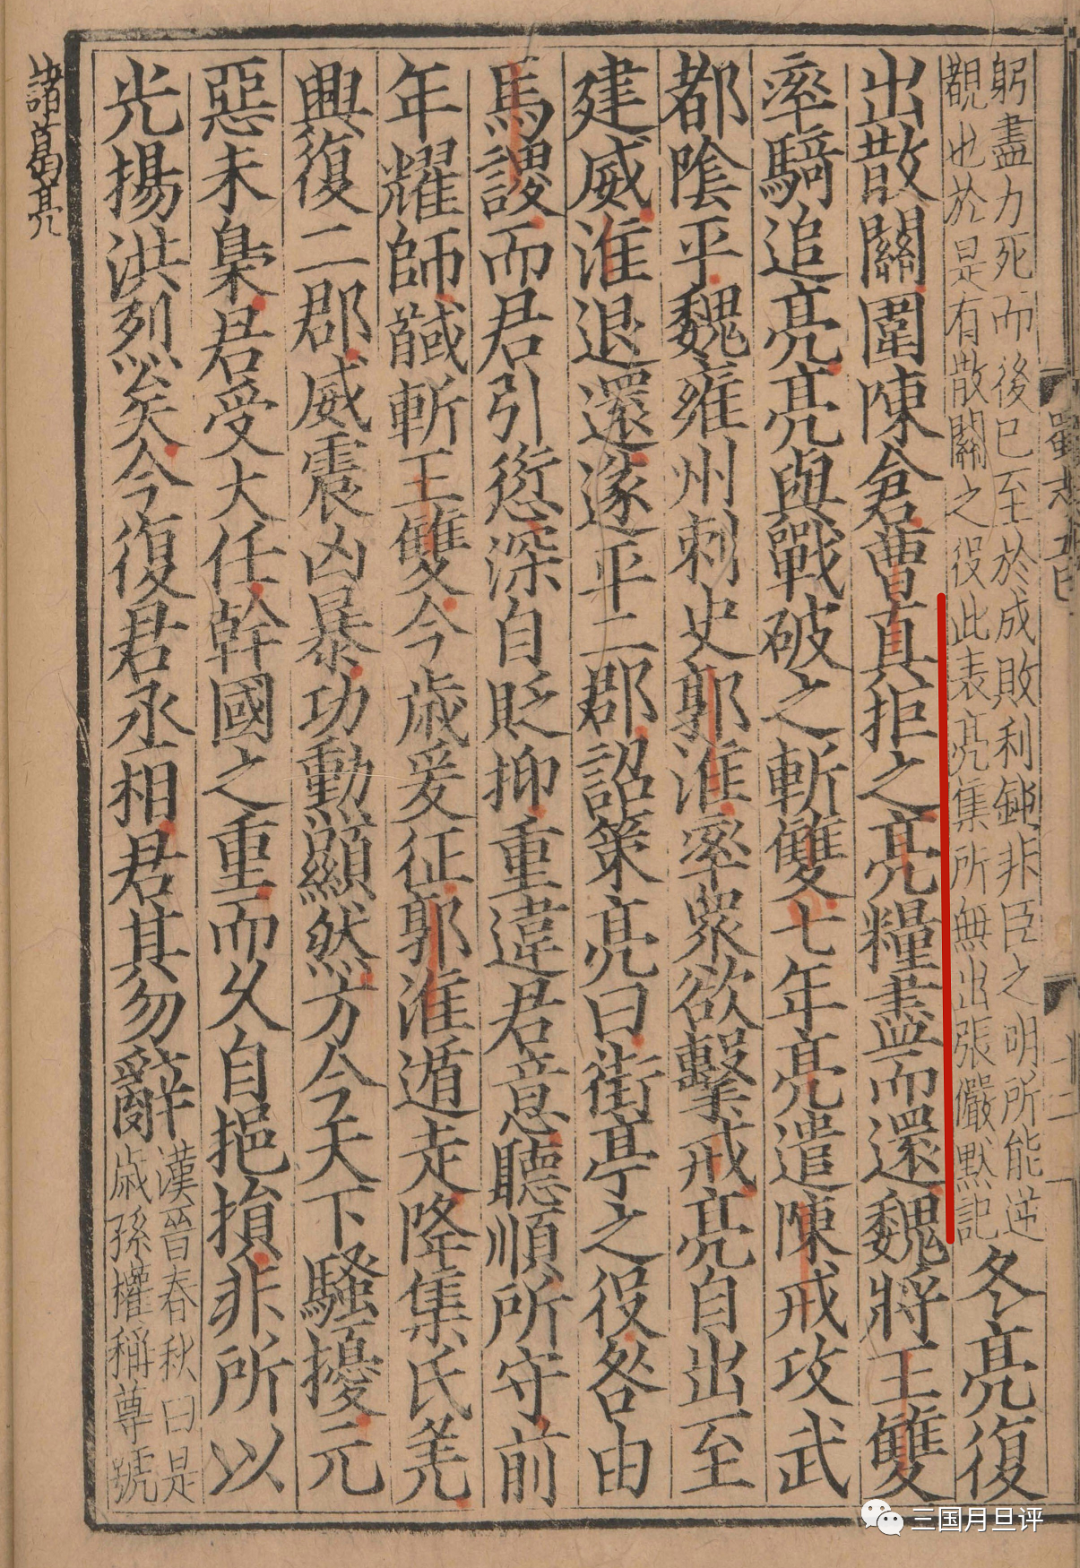 躬盡力死而後已至於成敗利鈍非臣之明所能逆
觀也於是有散關之役此表亮集所無出張儼默記
冬亮復
出散關圍陳倉曹真拒之亮糧盡而還魏將王雙
率騎追亮亮與戰破之斬雙七年亮遣陳戒攻武
都陰平魏雍州刺史郭淮率衆欲擊戒亮自出至
建威淮退還遂平二郡詔策亮曰街亭之役咎由
馬謖而君引愆深自貶抑重違君意聽順所守前
年耀師馘斬王雙今歲爰征郭淮遁走降集氐羌
興復二郡威震凶暴功勳顯然方今天下騷擾元
惡未梟君受大任幹國之重而久自挹損非所以
光揚洪烈矣今復君丞相君其勿辭
漢晉春秋曰是
歲孫權稱尊號
諸葛亮
三国月旦评